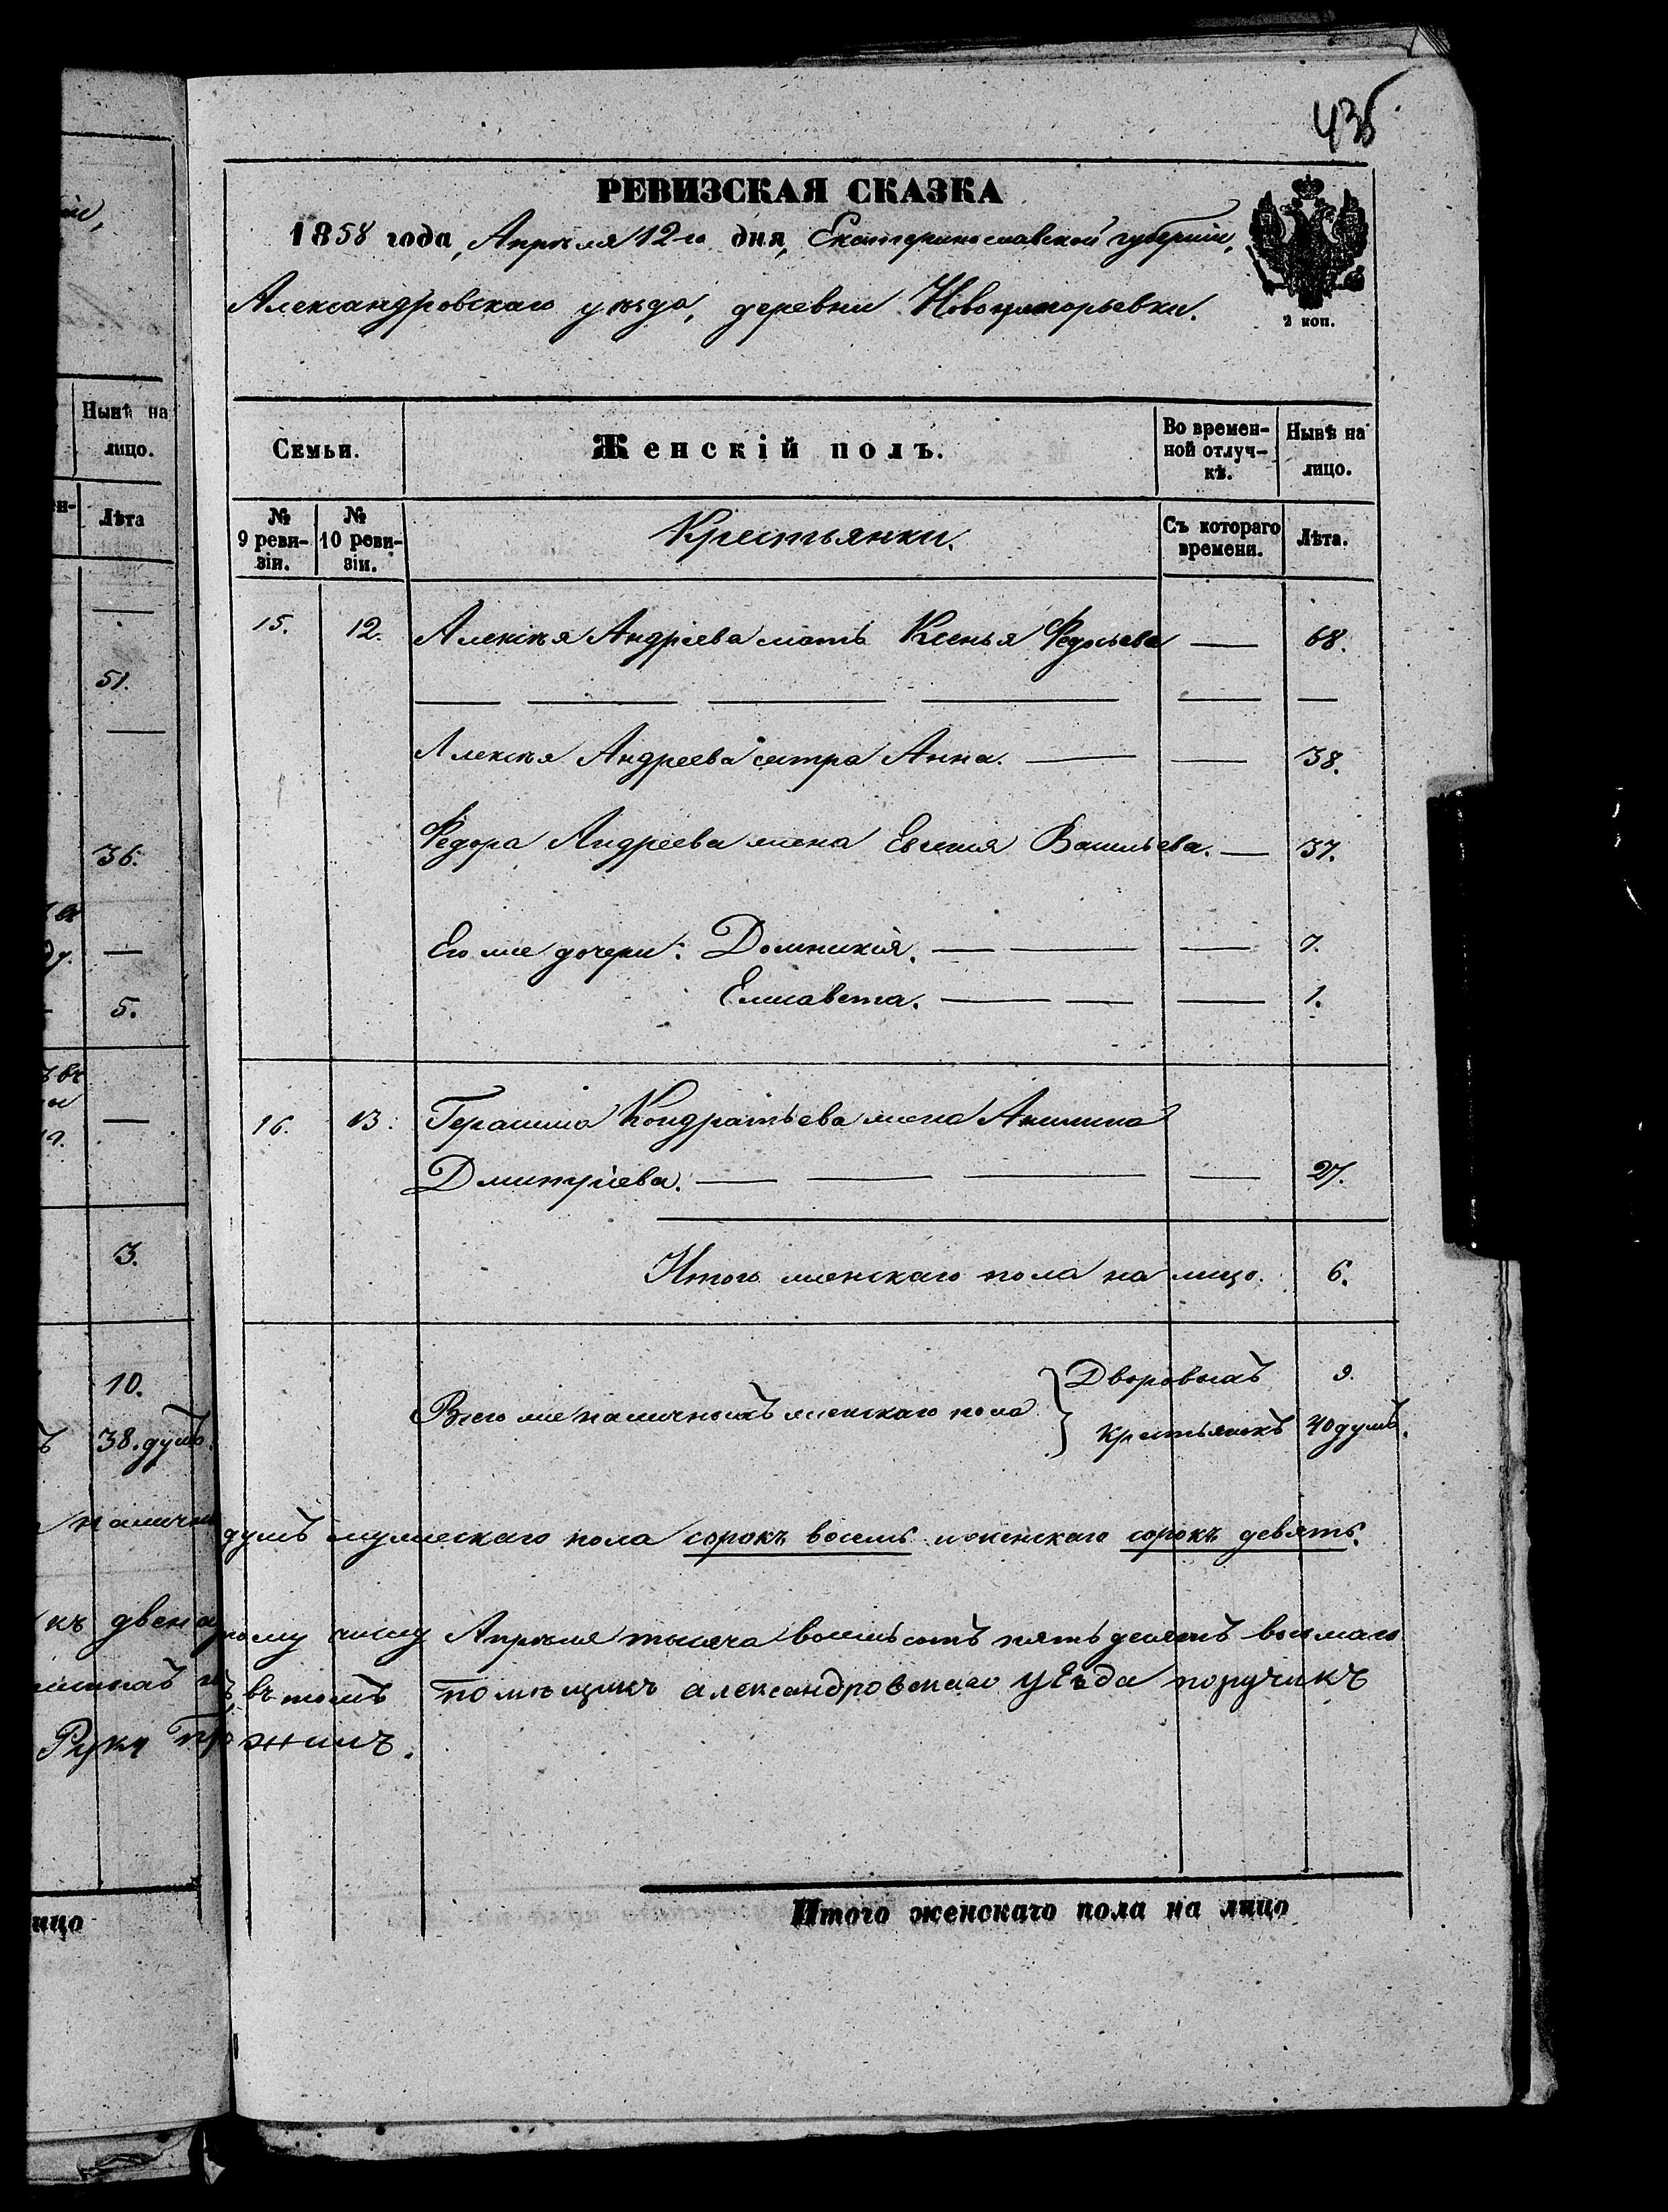 435
РЕВИЗСКАЯ СКАЗКА
1858 года, Апрѣля 12го дня, Екатеринославской губерніи,
Александровскаго уѣзда, деревни
2 коп.
Семьи.
Женскій полъ.
Во времен-
ной отлуч-
кѣ.
Нынѣ на
лицо.
№
9 реви-
зіи.
№
10 реви-
зіи.
Крестьянки.
Съ котораго
времени.
Лѣта.
15. 12. Алексѣя Андреева мать Ксенья Федосьева — 68.
Алексѣя Андреева сестра Анна. — — 38.
Федора Андреева жена Евгенія Васильева. — 37.
Его же дочери: Домникія. — — — 7.
Елисавета. — — — 1.
16. 13. Герасима Кондратьева жена Акилина
Дмитріева. — — — — 27.
Итого женскаго пола на лицо. 6.
Дворовыхъ 9.
Всего же наличныхъ женскаго пола
Крестьянокъ 40 душъ.
душъ мужескаго пола сорокъ восемь и женскаго сорокъ девять.
числу Апрѣля тысяча восемьсотъ пятьдесятъ восьмаго
въ томъ помѣщикъ александровскаго уѣзда поручикъ
Итого женскаго пола на лицо
Нынѣ на
лицо.
Лѣта
51.
36.
5.
3.
10.
38. душъ.
къ
Руку